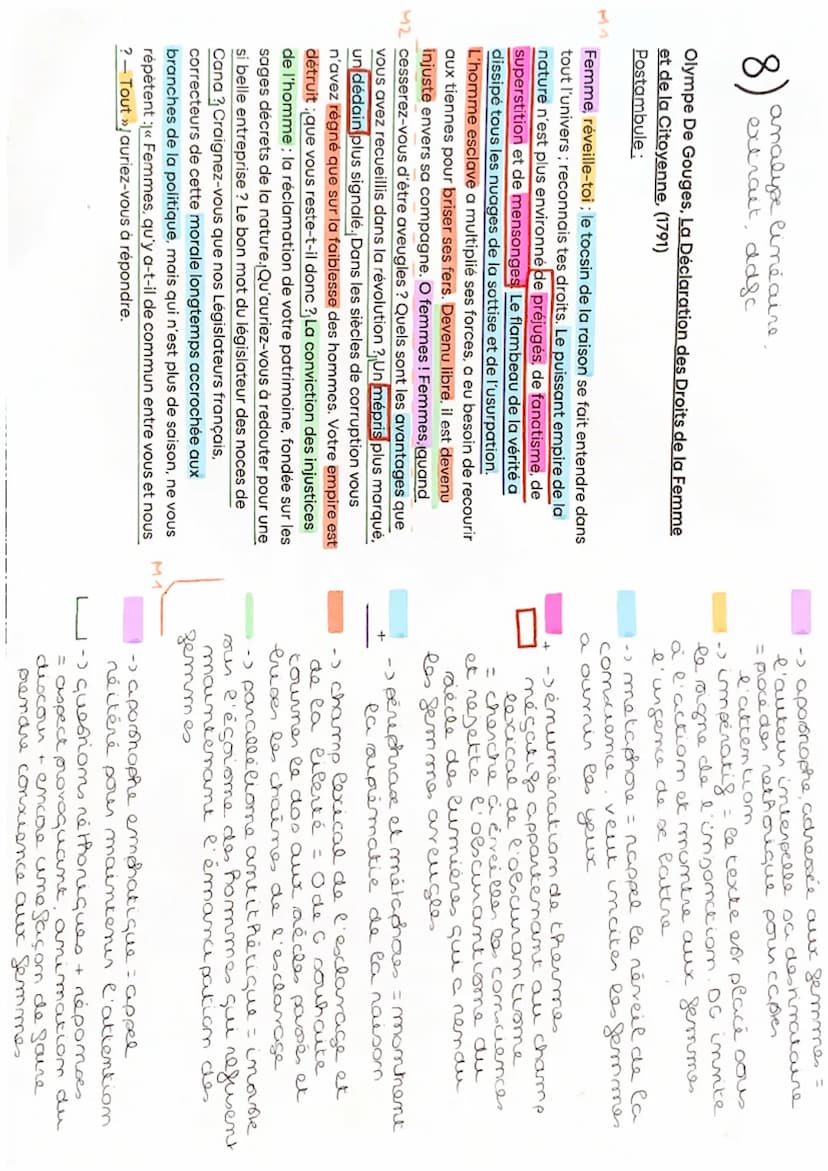 8) analyse linéaire,
extrait, ddfc
Olympe De Gouges, La Déclaration des Droits de la Femme
et de la Citoyenne, (1791)
Postambule :
M1
Femme, réveille-toi ; le tocsin de la raison se fait entendre dans
tout l'univers ; reconnais tes droits. Le puissant empire de la
nature n'est plus environné de préjugés, de fanatisme, de
superstition et de mensonges. Le flambeau de la vérité a
dissipé tous les nuages de la sottise et de l'usurpation.
L'homme esclave a multiplié ses forces, a eu besoin de recourir
aux tiennes pour briser ses fers. Devenu libre, il est devenu
injuste envers sa compagne. O femmes ! Femmes, quand
M2
cesserez-vous d'être aveugles ? Quels sont les avantages que
vous avez recueillis dans la révolution ? Un mépris plus marqué,
un dédain plus signalé. Dans les siècles de corruption vous
n'avez régné que sur la faiblesse des hommes. Votre empire est
détruit ; que vous reste-t-il donc ? La conviction des injustices
de l'homme ; la réclamation de votre patrimoine, fondée sur les
sages décrets de la nature. Qu'auriez-vous à redouter pour une
si belle entreprise ? Le bon mot du législateur des noces de
Cana ? Craignez-vous que nos Législateurs français,
correcteurs de cette morale longtemps accrochée aux
branches de la politique, mais qui n'est plus de saison, ne vous
répètent : « Femmes, qu'y a-t-il de commun entre vous et nous
? — Tout », auriez-vous à répondre.
-> apostrophe, adressée aux femmes =
l'auteur interpelle sa destinataire
= procédés rethorique pour capter
l'attention
-> impératif = le texte est placé sous
le signe de l'injonction. DG invite
à l'action et montre aux femmes
l'urgence de se battre
-> métaphore = rappel le réveil de la
conscience. veut inciter les femmes
a ouvrir les yeux
+ -> énumération de thermes
négatifs appartenant au champ
lexical de l'obscurantisme
= cherche à éveiller les consciences
et rejette l'obscurantisme du
siècle des lumières qui a rendu
les femmes aveugles
+ -> périphrase et métaphores = montrent
la suprématie de la raison
-> champ lexical de l'esclavage et
de la liberté = O de G souhaite
tourner le dos aux siècles passés et
briser les chaînes de l'esclavage
-> parallélisme antithétique = insiste
sur l'égoïsme des hommes qui refusent
maintenant l'émancipation des
femmes
M1
-> apostrophe emphatique = appel
réitéré pour maintenir l'attention
-> questions réthoriques + réponses
= aspect provoquant, animation du
discours + encore une façon de faire
prendre conscience aux femmes